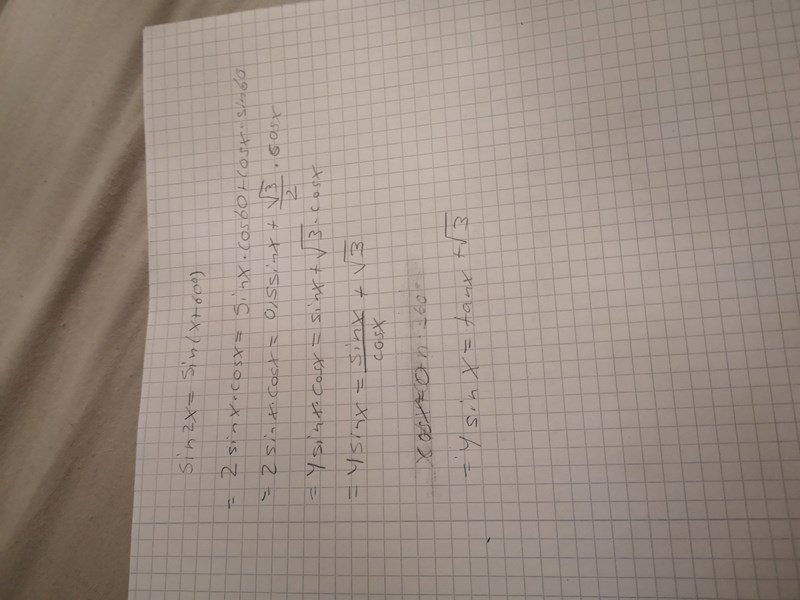 sin2x = sin(x+60°)
= 2 sinx·cosx = sinx·cos60+cosx·sin60
= 2 sinx·cosx = 0,5 sinx + √3/2 · cosx
= 4 sinx·cosx = sinx + √3 · cosx
= 4 sinx = sinx/cosx + √3
= 4 sin x = tanx + √3